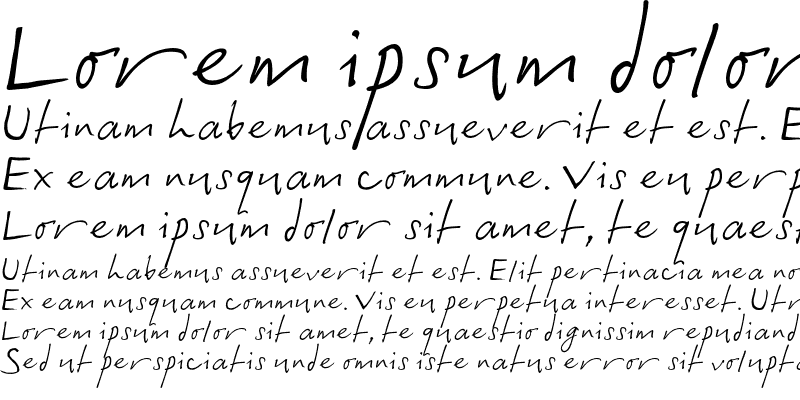 Lorem ipsum dolor
Utinam habemus assueverit et est. E
Ex eam nusquam commune. Vis eu perp
Lorem ipsum dolor sit amet, te quaest
Utinam habemus assueverit et est. Elit pertinacia mea no
Ex eam nusquam commune. Vis eu perpetua interesset. Utr
Lorem ipsum dolor sit amet, te quaestio dignissim repudiand
Sed ut perspiciatis unde omnis iste natus error sit volupta